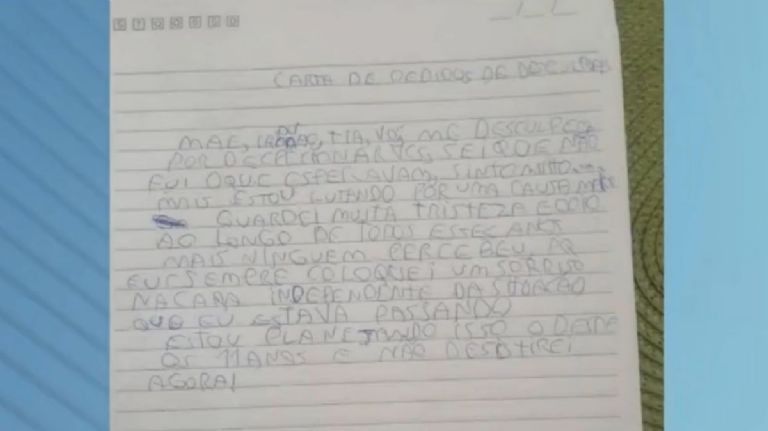 CARTA DE PEDIDOS DE DESCULPAS
MAE, IRMÃO, TIA, VOS ME DESCULPEM
POR DECEPCIONAR VCS, SEI QUE NÃO
FUI O QUE ESPERAVAM, SINTO MUITO
MAIS ESTOU LUTANDO POR UMA CAUSA
GUARDEI MUITA TRISTEZA E ODIO
AO LONGO DE TODOS ESSES ANOS
MAIS NINGUEM PERCEBEU
EU SEMPRE COLOQUEI UM SORRISO
NA CARA INDEPENDENTE DA SITUAÇÃO
QUE EU ESTAVA PASSANDO
ESTOU PLANEJANDO ISSO DESDE
OS 11 ANOS E NÃO DESISTIREI
AGORA!